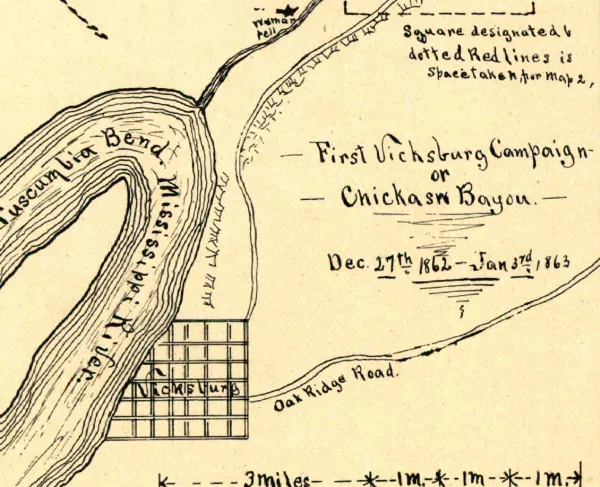 Woman
fell
Square designated by
dotted Red lines is
space taken, for map 2,
First Vicksburg Campaign-
or
— Chickasw Bayou. —
Dec. 27th 1862 — Jan 3rd, 1863
Tuscumbia Bend. Mississippi River.
Vicksburg
Oak Ridge Road.
3 miles — — 1 m. — 1 m — 1 m.